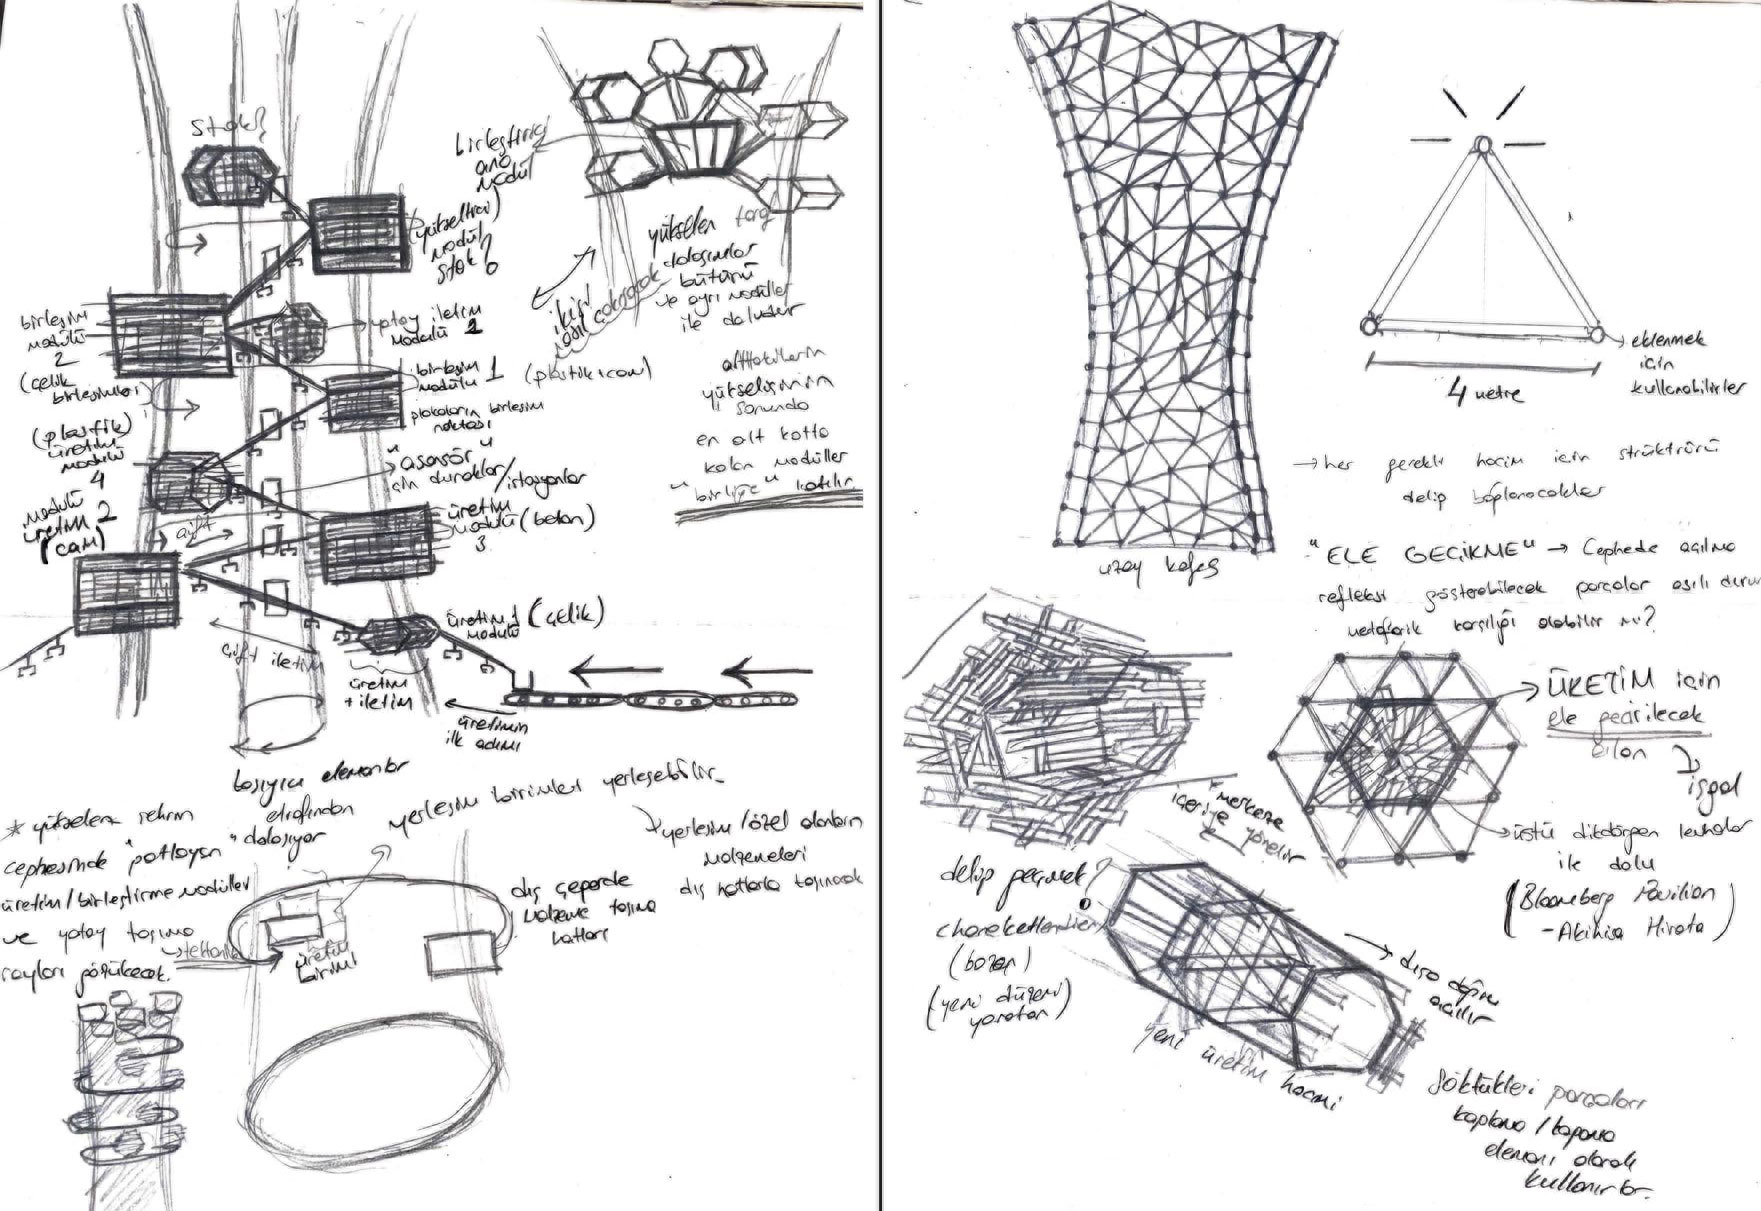 stok?
birleştirici
ana
modül
(yükseltici)
modül
stok?
yükselen
dolaşımlar
bütünü
ve ayrı modüller
ile doludur
ikisi
(plastik, cam)
alttakilerin
yükselişinin
sonunda
en alt kotta
kalan modüller
"birliğe" katılır
birleşim
modülü
2
(çelik
birleşimleri)
yatay iletim
modülü 2
birleşim
modülü 1
plakaların birleşim
noktası
(plastik)
üretim
modülü
4
"asansör"
için duraklar/istasyonlar
modülü
üretim 2
(cam)
çift
üretim
modülü (beton)
3
üretim 1 (çelik)
modülü
çift iletim
üretim
+ iletim
üretimin
ilk adımı
taşıyıcı elemanlar
etrafından
dolaşıyor
* yükselen zeminin
cephesinde "patlayan"
üretim/birleştirme modülleri
ve yatay taşıma
rayları gözükecek.
yerleşim birimleri yerleşebilir
yerleşim/özel alanların
malzemeleri
dış hatlarla taşınacak
dış çeperde
malzeme taşıma
hatları
üretim
birimi
uzay kafes
4 metre
eklenmek
için
kullanabilirler
→ her gerekli hacim için strüktürü
delip bağlanacaklar
"ELE GEÇİRME" → Cephede açılma
refleksi gösterebilecek parçalar asılı durur
metaforik karşılığı olabilir mi?
ÜRETİM için
ele geçirilecek
alan
işgal
üstü dikdörtgen levhalar
ile dolu
(Bloomberg Pavilion
- Akihisa Hirata)
* merkeze
içeriye yönelir
delip geçmek?
(hareketlendiren)
(bozan)
(yeni düzeni
yaratan)
dışa doğru
açılır
yeni üretim hacmi
Söktükleri parçaları
kaplama/kapama
elemanı olarak
kullanırlar.